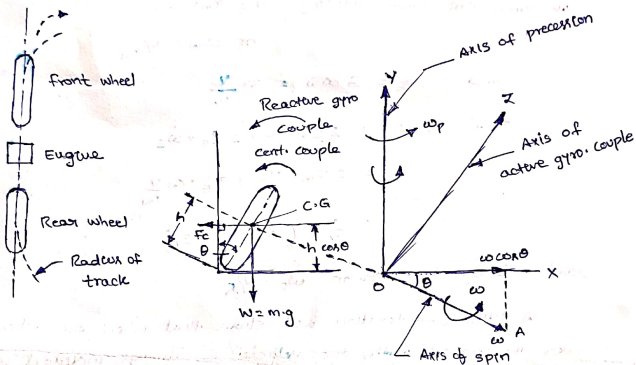 Front wheel
Engine
Rear wheel
Radius of
track
Reactive gyro
couple
cent. couple
C.G
h
Fc
θ
h cosθ
W = m.g
Axis of precession
Y
ωp
Z
Axis of
active gyro. couple
ω cosθ
X
O
θ
ω
ω
A
Axis of spin